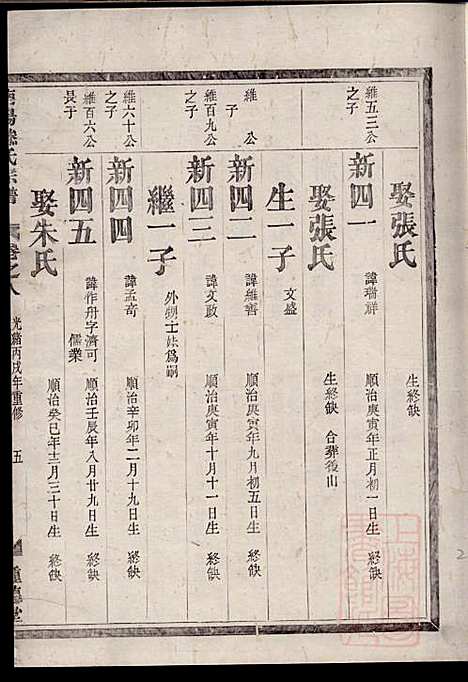 娶張氏 生終缺
維五三公之子 新四一 諱瑞祥 順治庚寅年正月初一日生 終缺
娶張氏 生終缺 合葬後山
生一子 文盛
維 公 子 新四二 諱維善 順治庚寅年九月初五日生 終缺
維百九公之子 新四三 諱文政 順治庚寅年十月十一日生 終缺
繼一子 外甥士 爲嗣
維六十公之子 新四四 諱孟奇 順治辛卯年二月十九日生 終缺
維百六公長子 新四五 諱作舟字濟可 儒業 順治壬辰年八月廿九日生 終缺
娶朱氏 順治癸巳年十二月三十日生 終缺
陽 氏宗譜 卷之八 光緒丙戌年重修 五 堂